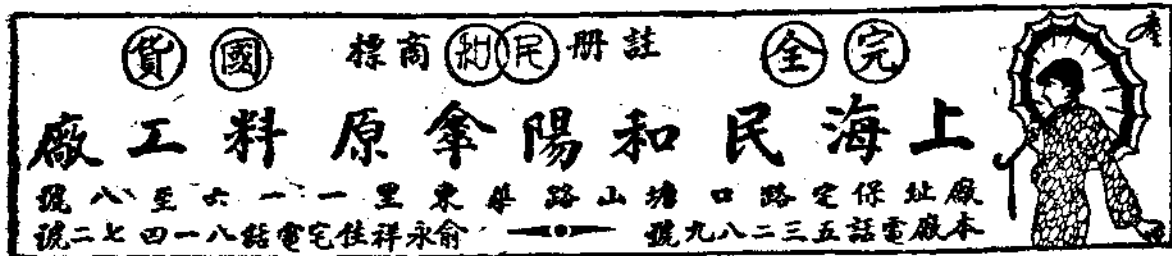 完全 註册 民和 商標 國貨
上海民和陽傘原料工廠
廠址保定路口塘山路華東里一一一六至八號
本廠電話五三二八九號 俞永祥住宅電話八一四七二號